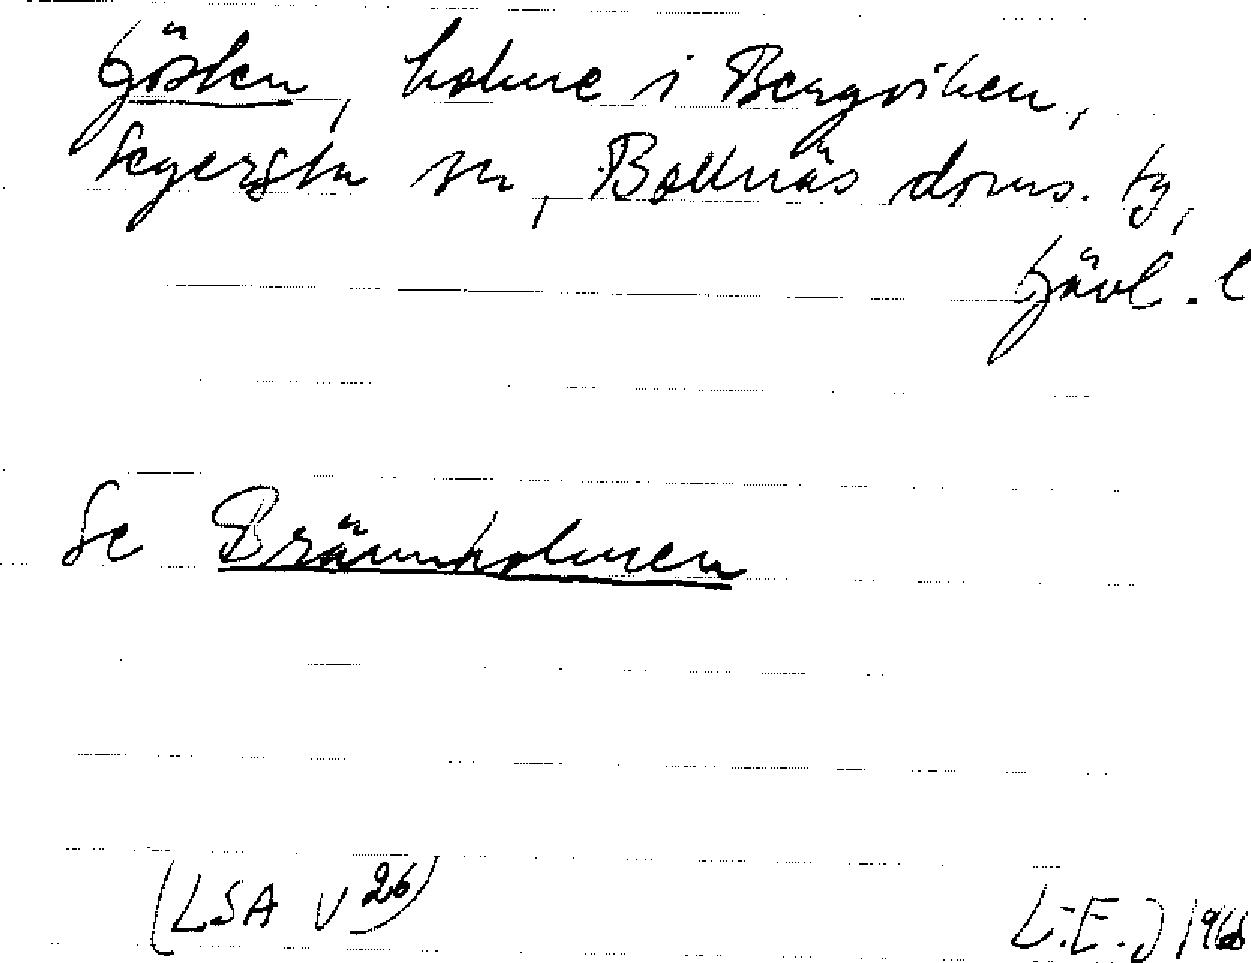 Gösken, holme i Bergviken,
Segersta sn, Bollnäs doms. tg,
Gävl. l
Se Brännholmen
(LSA V 26)
L.E.J 1966